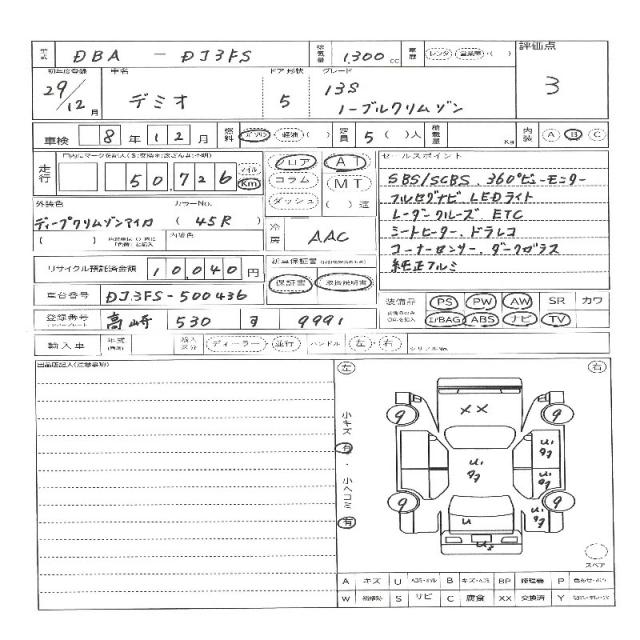 型式 DBA - DJ3FS 排気量 1,300 cc 車歴 レンタ 営業車・( ) 評価点
初年度登録 車名 ドア形状 グレード
29/12月 デミオ 5 13S ノーブルクリムゾン 3
車検 8年12月 燃料 ガソリン・軽油・( ) 定員 5( )人 積載量 Kg 内装 A B C
走行 50,726 マイル Km フロア AT セールスポイント
コラム MT SBS/SCBS、360°ビューモニター
外装色 カラーNo. ダッシュ ( )速 フルセグナビ LEDライト
ディープクリムゾンマイカ (45R) レーダークルーズ ETC
( ) 内装色 冷房 AAC シートヒーター、ドラレコ
コーナーセンサー、ダークガラス
リサイクル預託済金額 10,040円 保証書 取扱説明書 純正アルミ
車台番号 DJ3FS-500436 装備品 PS PW AW SR カワ
登録番号 高崎 530 す 9991 エアBAG ABS ナビ TV
輸入車 年式 輸入区分 ディーラー・並行 ハンドル 左・右 シリアルNo.
出品店記入(注意事項) 左 右
小キズ 有・小ヘコミ 有
9 9
XX
U1
U1 92
92 U1
92
9 9
U1
92
U
U2
スペア
A キズ U B BP P
W S サビ C 腐食 XX 交換済 Y